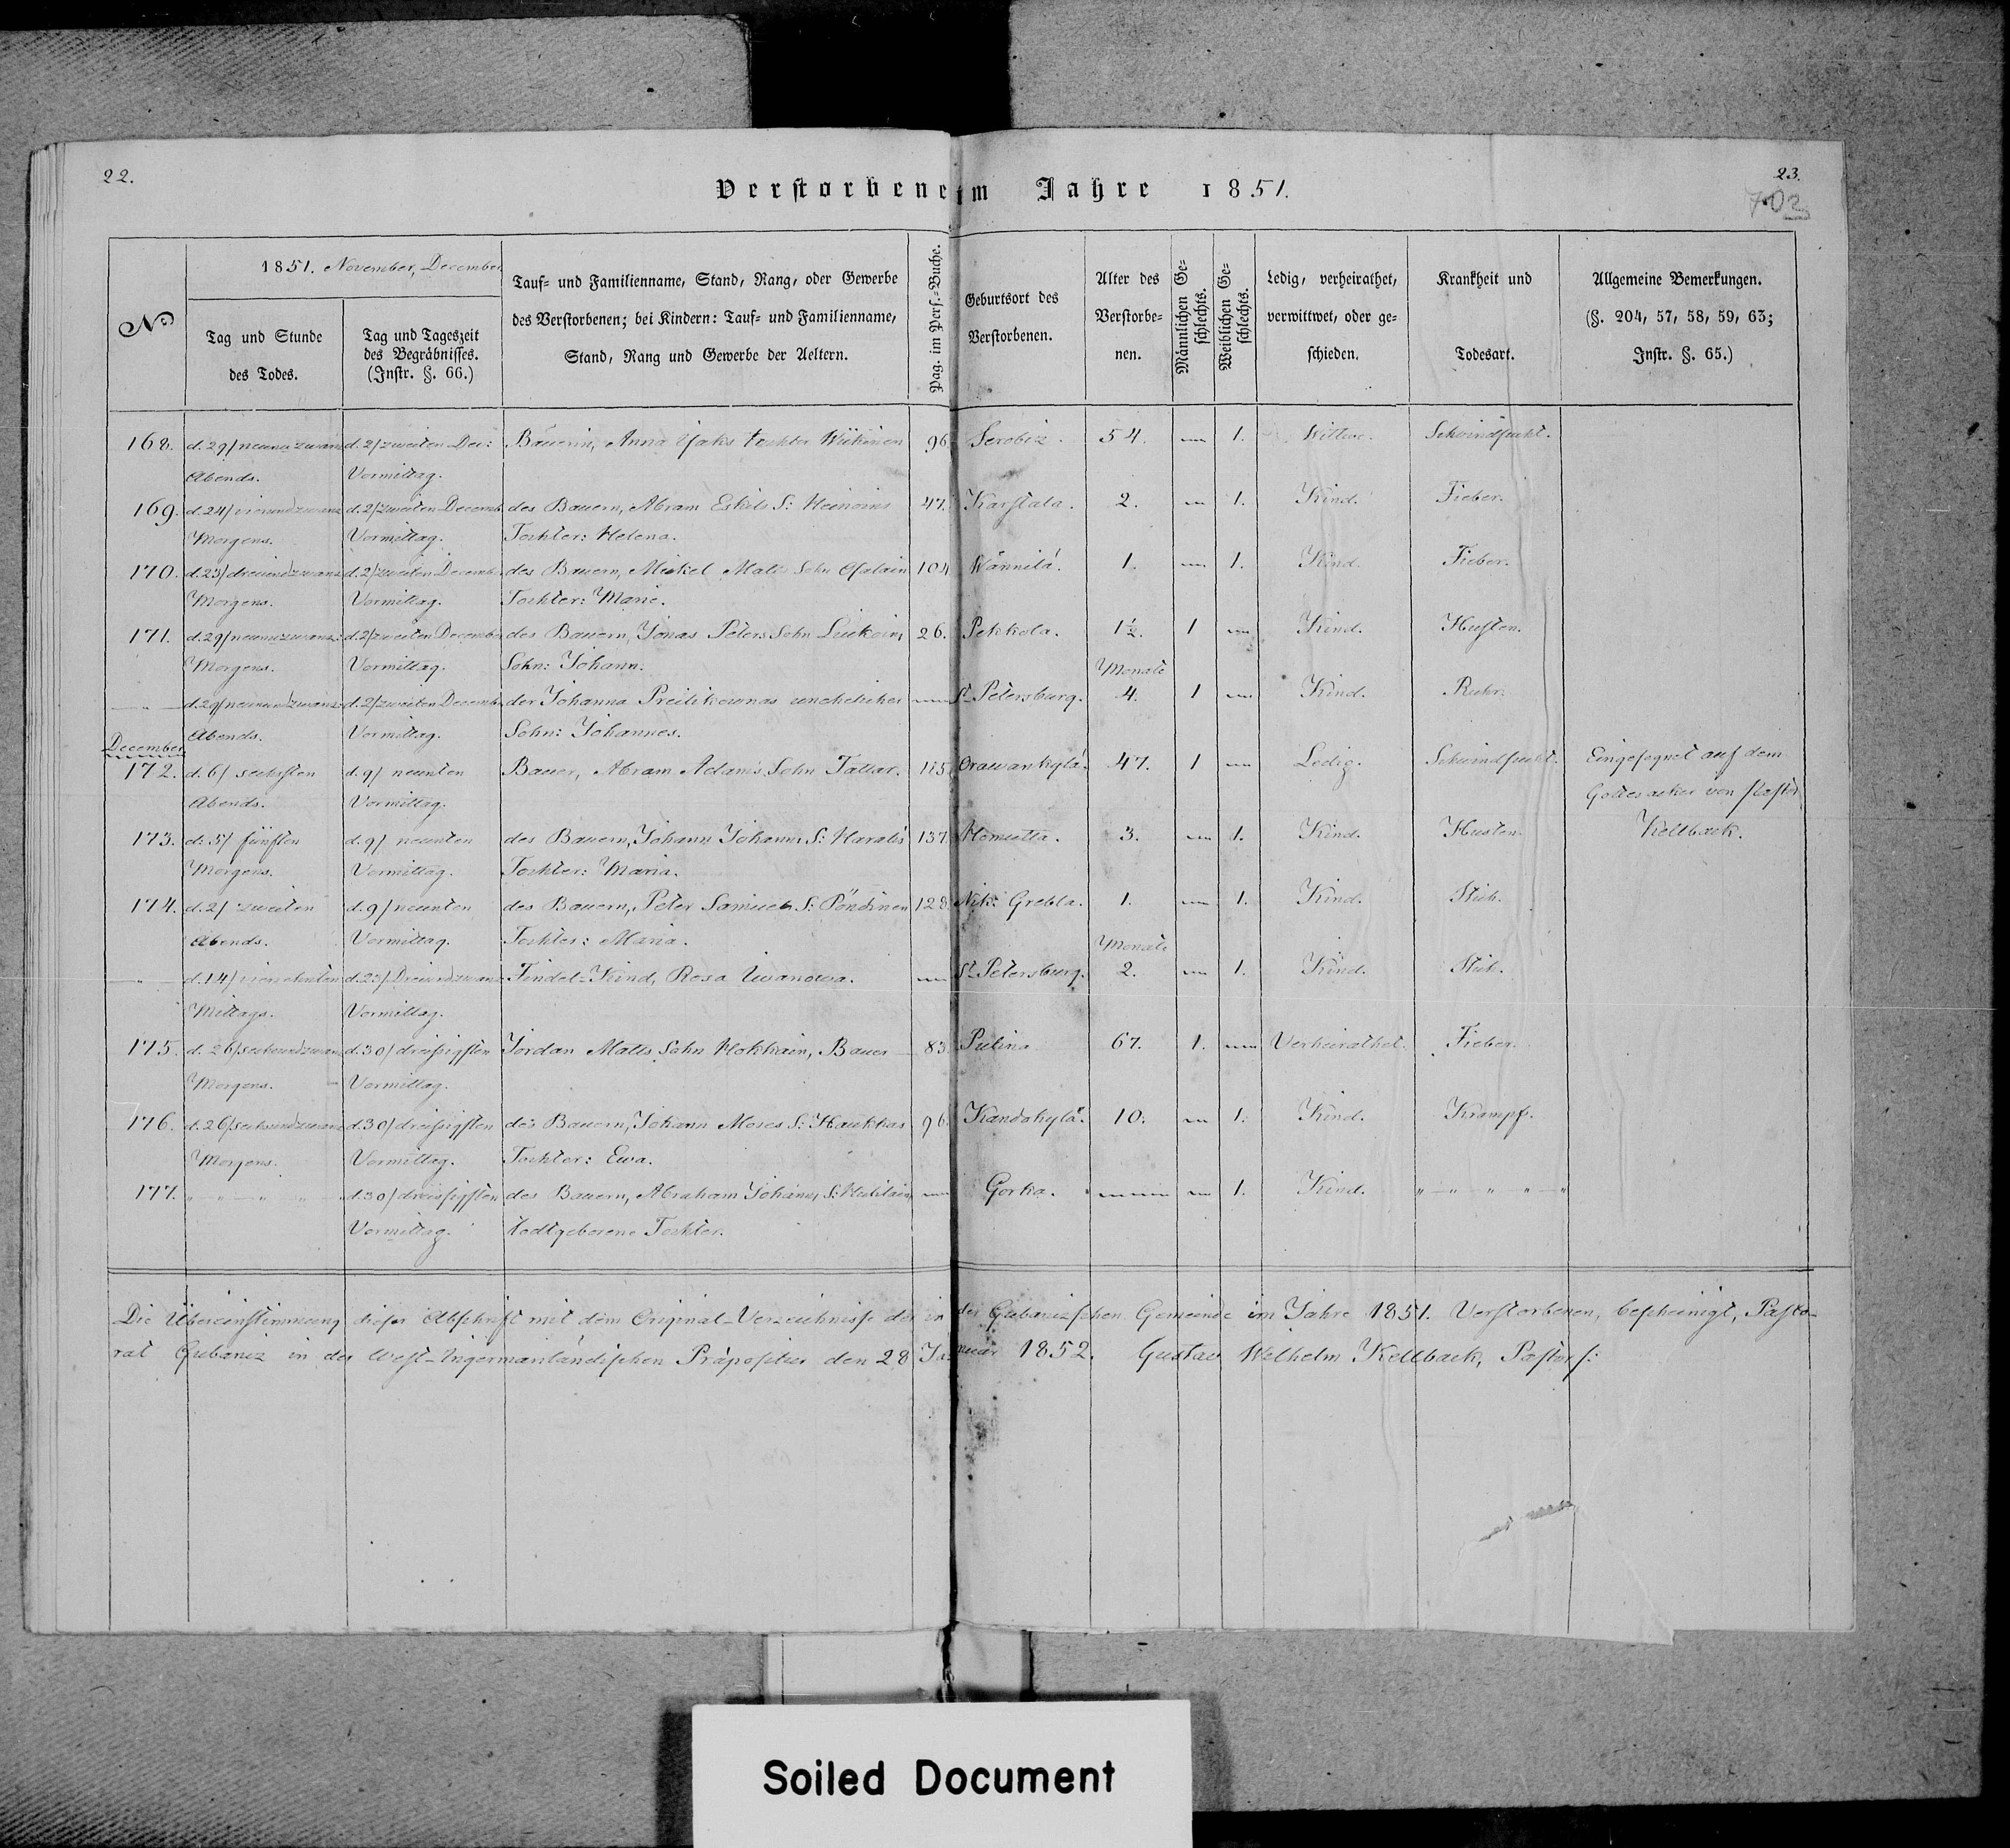 22.
23.
702
Verstorbene im Jahre 1851.
No
1851. November, December
Tag und Stunde
des Todes.
Tag und Tageszeit
des Begräbnisses.
(Instr. §. 66.)
Tauf- und Familienname, Stand, Rang, oder Gewerbe
des Verstorbenen; bei Kindern: Tauf- und Familienname,
Stand, Rang und Gewerbe der Aeltern.
Pag. im Pers.-Buche.
Geburtsort des
Verstorbenen.
Alter des
Verstorbe-
nen.
Männlichen Ge-
schlechts.
Weiblichen Ge-
schlechts.
Ledig, verheirathet,
verwittwet, oder ge-
schieden.
Krankheit und
Todesart.
Allgemeine Bemerkungen.
(§. 204, 57, 58, 59, 63;
Instr. §. 65.)
168. d. 29/ neunuzwanz d. 2/ zweiten Dec: Bäuerin, Anna Jaks tochter Wiikinen 96 Serobiz. 54. — 1. Wittwe. Schwindsucht.
Abends. Vormittag.
169. d. 24/ vierundzwanz d. 2/ zweiten Decemb. des Bauern, Abram Eskils S: Heinoins 47. Karstala. 2. — 1. Kind. Fieber.
Morgens. Vormittag. Tochter: Helena.
170. d. 23/ dreiundzwanz d. 2/ zweiten Decemb. des Bauern, Mickel Matts Sohn 104 Wännilä. 1. — 1. Kind. Fieber.
Morgens. Vormittag. Tochter: Marie.
171. d. 29/ neunuzwanz: d. 2/ zweiten December des Bauern, Jonas Peters Sohn Liukoin, 26. Pekkola. 1½. 1 — Kind. Husten.
Morgens. Vormittag. Sohn: Johann. Monate
— " — d. 29/ neunundzwanz: d. 2/ zweiten Decemb. der Johanna Preilikownas uneheliches — St Petersburg. 4. 1 — Kind. Ruhr.
Abends. Vormittag. Sohn: Johannes.
December
172. d. 6/ sechsten d. 9/ neunten Bauer, Abram Adams Sohn Tattar. 115. Orawankylä. 47. 1 — Ledig. Schwindsucht. Eingesegnet auf dem
Abends. Vormittag. Gottesacker von Pastor
173. d. 5/ fünften d. 9/ neunten des Bauern, Johann Johanns S: Haralis 137. Homutta. 3. — 1. Kind. Husten. Kellback.
Morgens. Vormittag. Tochter: Maria.
174. d. 2/ zweiten d. 9/ neunten des Bauern, Peter Samuels S: Pöndinen 128. Nik: Grebla. 1. — 1. Kind. Stich.
Abends. Vormittag. Tochter: Maria. Monate
— " — d. 14/ vierzehnten d. 23/ Dreiundzwanz Findel-Kind, Rosa Iwanowa. — St Petersburg. 2. — 1. Kind. Stich.
Mittags. Vormittag.
175. d. 26/ sechsundzwanz d. 30/ dreißigsten Jordan Matts Sohn Hokkain, Bauer 83. Pulina 67. 1. — Verheirathet. Fieber.
Morgens. Vormittag.
176. d. 26/ sechsundzwanz d. 30/ dreißigsten des Bauern, Johann Moses S: Haukkas 96. Kandakylä. 10. — 1. Kind. Krampf.
Morgens. Vormittag. Tochter: Ewa.
177. " " — " " " d. 30/ dreissigsten des Bauern, Abraham Johanns S: — Gorka. — — 1. Kind. " — " " " — "
Vormittag. Todtgeborene Tochter.
Die Übereinstimmung dieser Abschrift mit dem Original-Verzeichnisse der in der Gubanizschen Gemeinde im Jahre 1851. Verstorbenen, bescheinigt, Pasto-
rat Gubaniz in der West-Ingermanländischen Präpositur den 28 Januar 1852. Gustav Wilhelm Kellback, Pastor.
Soiled Document